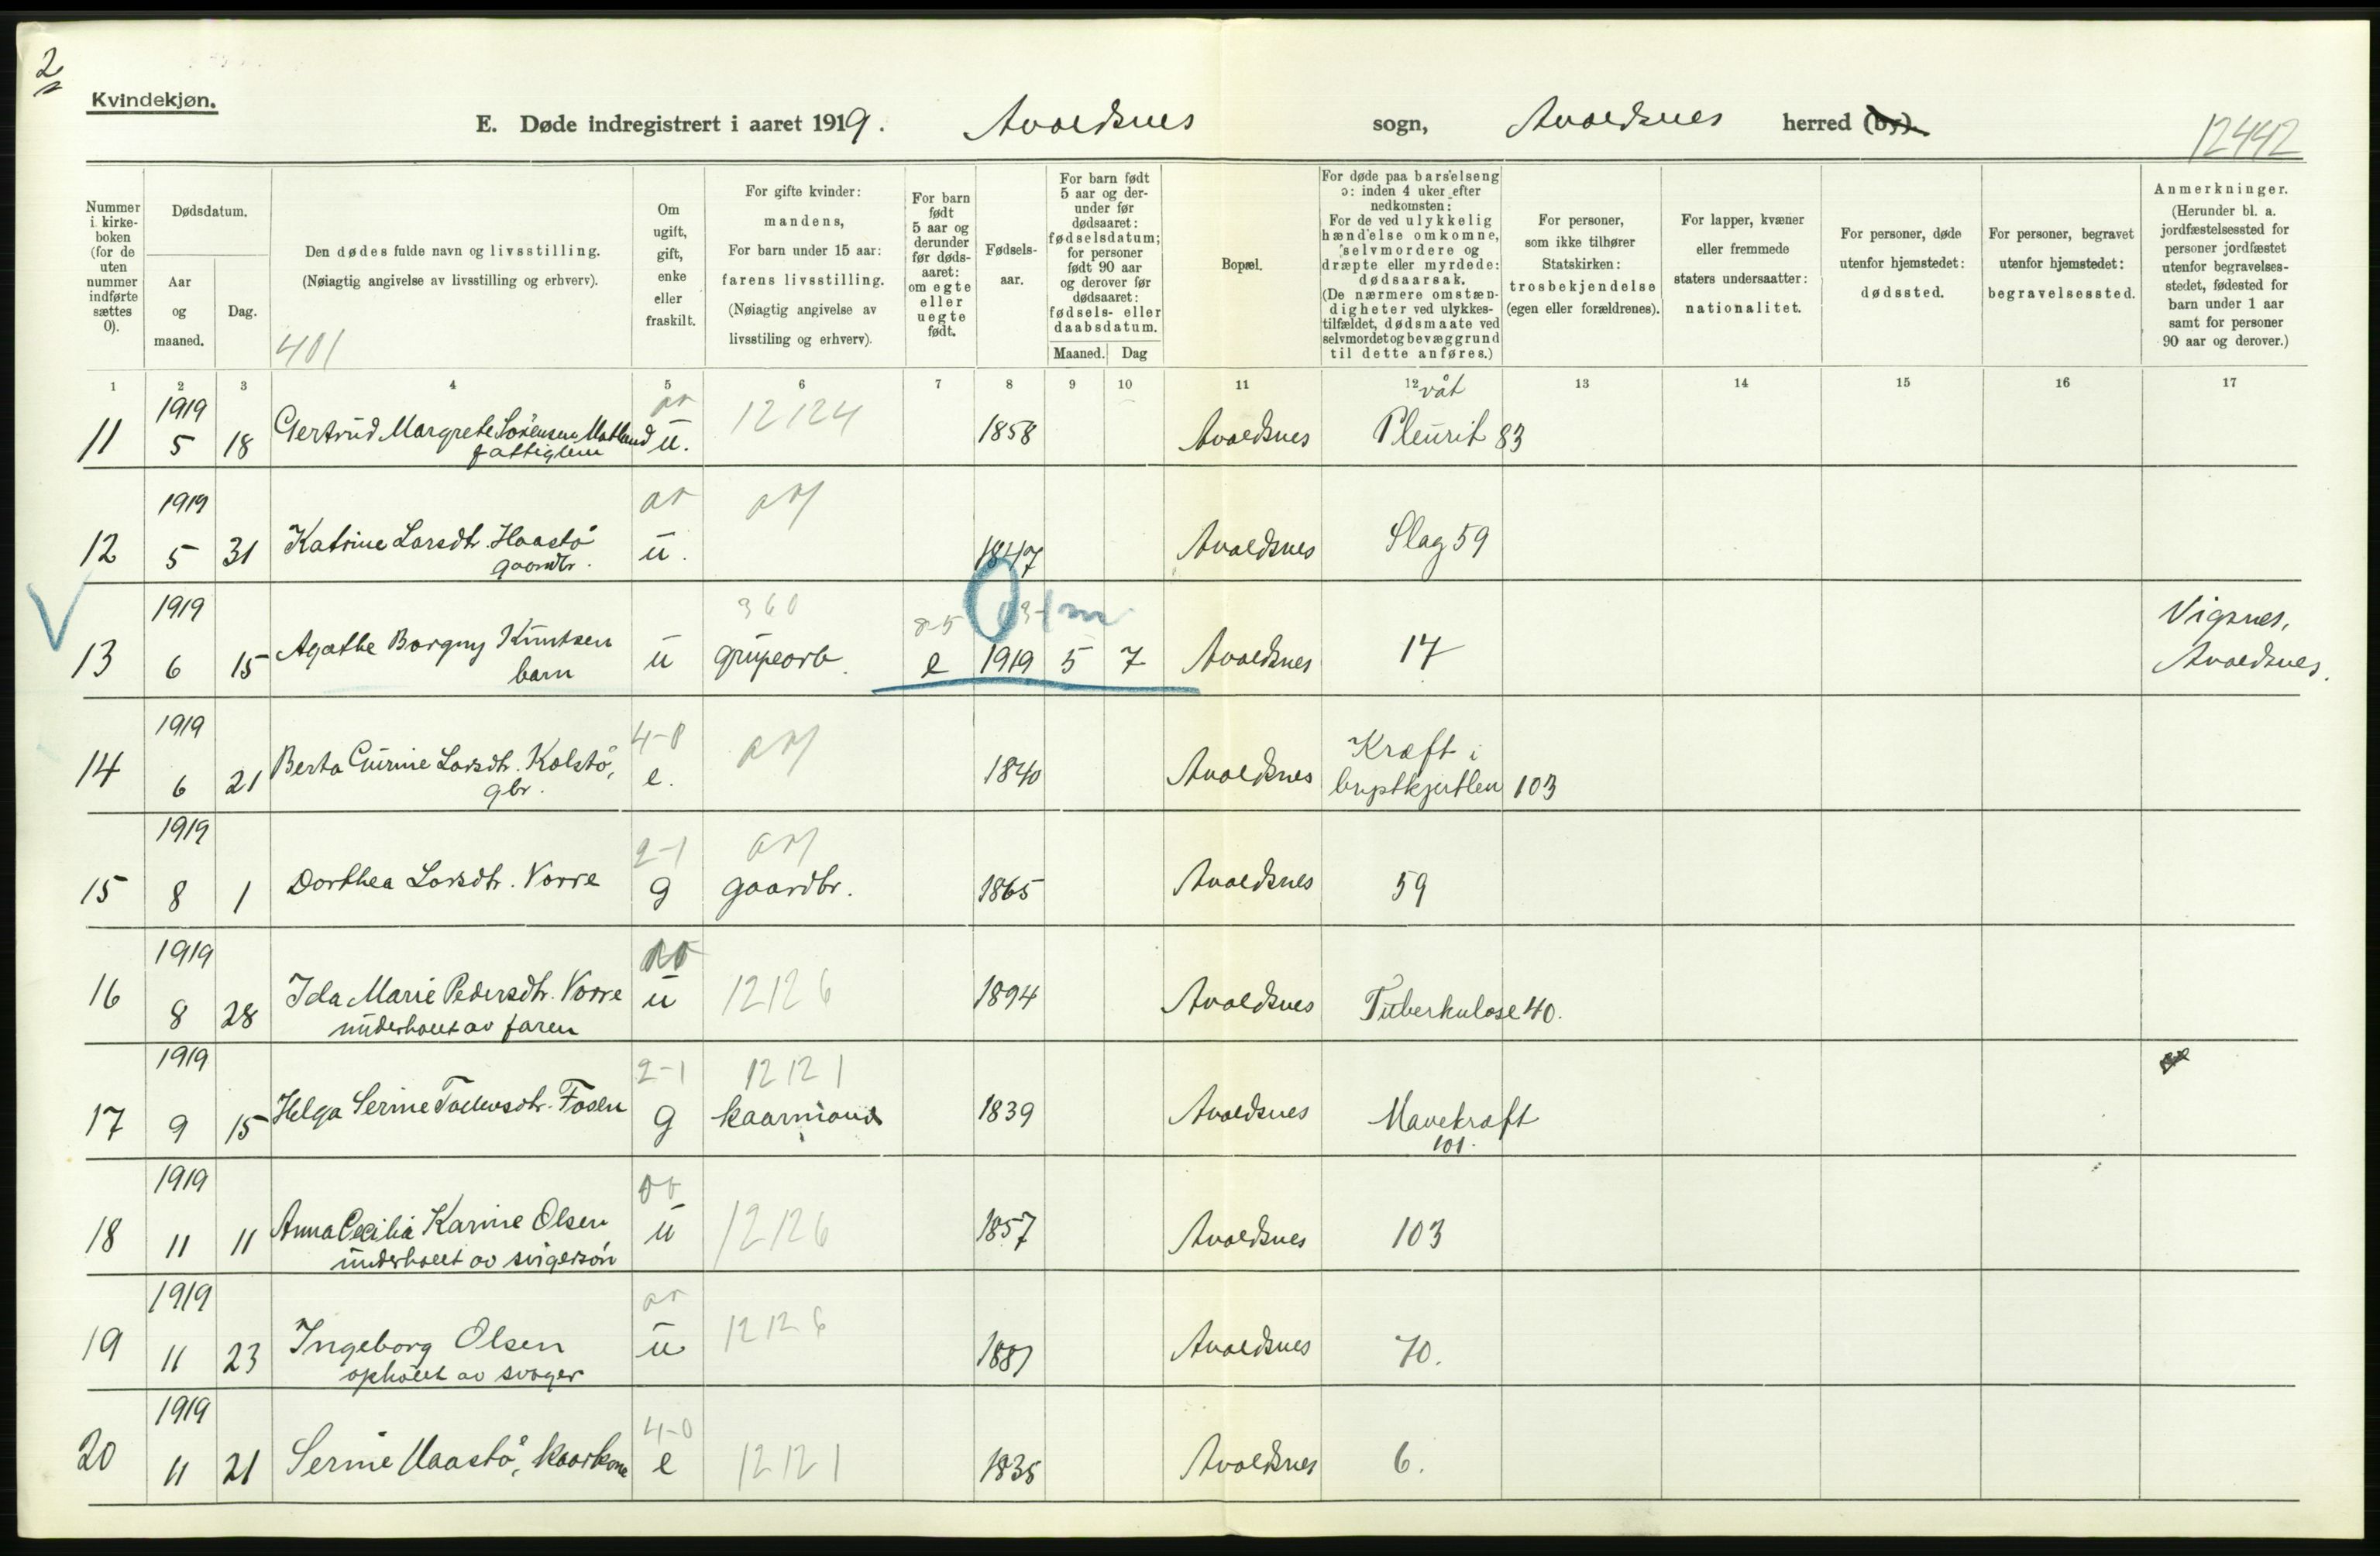 2
Kvindekjøn.
E. Døde indregistrert i aaret 1919. Avaldsnes sogn, Avaldsnes herred (by).
12442
Nummer i kirkeboken (for de uten nummer indførte sættes 0).
Dødsdatum.
Aar og maaned.
Dag.
Den dødes fulde navn og livsstilling.
(Nøiagtig angivelse av livsstilling og erhverv).
401
Om ugift, gift, enke eller fraskilt.
For gifte kvinder: mandens,
For barn under 15 aar: farens livsstilling.
(Nøiagtig angivelse av livsstiling og erhverv).
For barn født 5 aar og derunder før dødsaaret: om egte eller uegte født.
Fødselsaar.
For barn født 5 aar og derunder før dødsaaret: fødselsdatum; for personer født 90 aar og derover før dødsaaret: fødsels- eller daabsdatum.
Maaned. Dag
Bopæl.
For døde paa barselseng ɔ: inden 4 uker efter nedkomsten:
For de ved ulykkelig hændelse omkomne, selvmordere og dræpte eller myrdede: dødsaarsak.
(De nærmere omstændigheter ved ulykkestilfældet, dødsmaate ved selvmordet og bevæggrund til dette anføres.)
For personer, som ikke tilhører Statskirken: trosbekjendelse (egen eller forældrenes).
For lapper, kvæner eller fremmede staters undersaatter: nationalitet.
For personer, døde utenfor hjemstedet: dødssted.
For personer, begravet utenfor hjemstedet: begravelsessted.
Anmerkninger.
(Herunder bl. a. jordfæstelsessted for personer jordfæstet utenfor begravelsesstedet, fødested for barn under 1 aar samt for personer 90 aar og derover.)
1 2 3 4 5 6 7 8 9 10 11 12 13 14 15 16 17
11 1919 5 18 Gertrud Margrete Sörensen Matland fattiglem u. 12124 1858 Avaldsnes våt Pleurit 83
12 1919 5 31 Katrine Larsdtr. Haastö gaardbr. u. 1847 Avaldsnes Slag 59
13 1919 6 15 Agathe Borgny Knutsen barn u 360 grubearb. 8-5 e 1919 5 7 Avaldsnes 17 Vigsnes, Avaldsnes.
14 1919 6 21 Berta Gurine Larsdtr. Kolstö, gbr. 4-0 e. 1840 Avaldsnes Kræft i brystkjertlen 103
15 1919 8 1 Dorthea Larsdtr. Vorre 2-1 g gaardbr. 1865 Avaldsnes 59
16 1919 8 28 Ida Marie Pedersdtr. Vorre underholdt av faren u 12126 1894 Avaldsnes Tuberkulose 40.
17 1919 9 15 Helga Serine Fosen 2-1 g 12121 kaarmand 1839 Avaldsnes Mavekræft 101.
18 1919 11 11 Anna Cecilia Karine Olsen underholdt av svigersön u 12126 1857 Avaldsnes 103
19 1919 11 23 Ingeborg Olsen opholdt av svoger u 12126 1881 Avaldsnes 70.
20 1919 11 21 Serine Haastö, kaarkone 4-0 e 12121 1835 Avaldsnes 6.